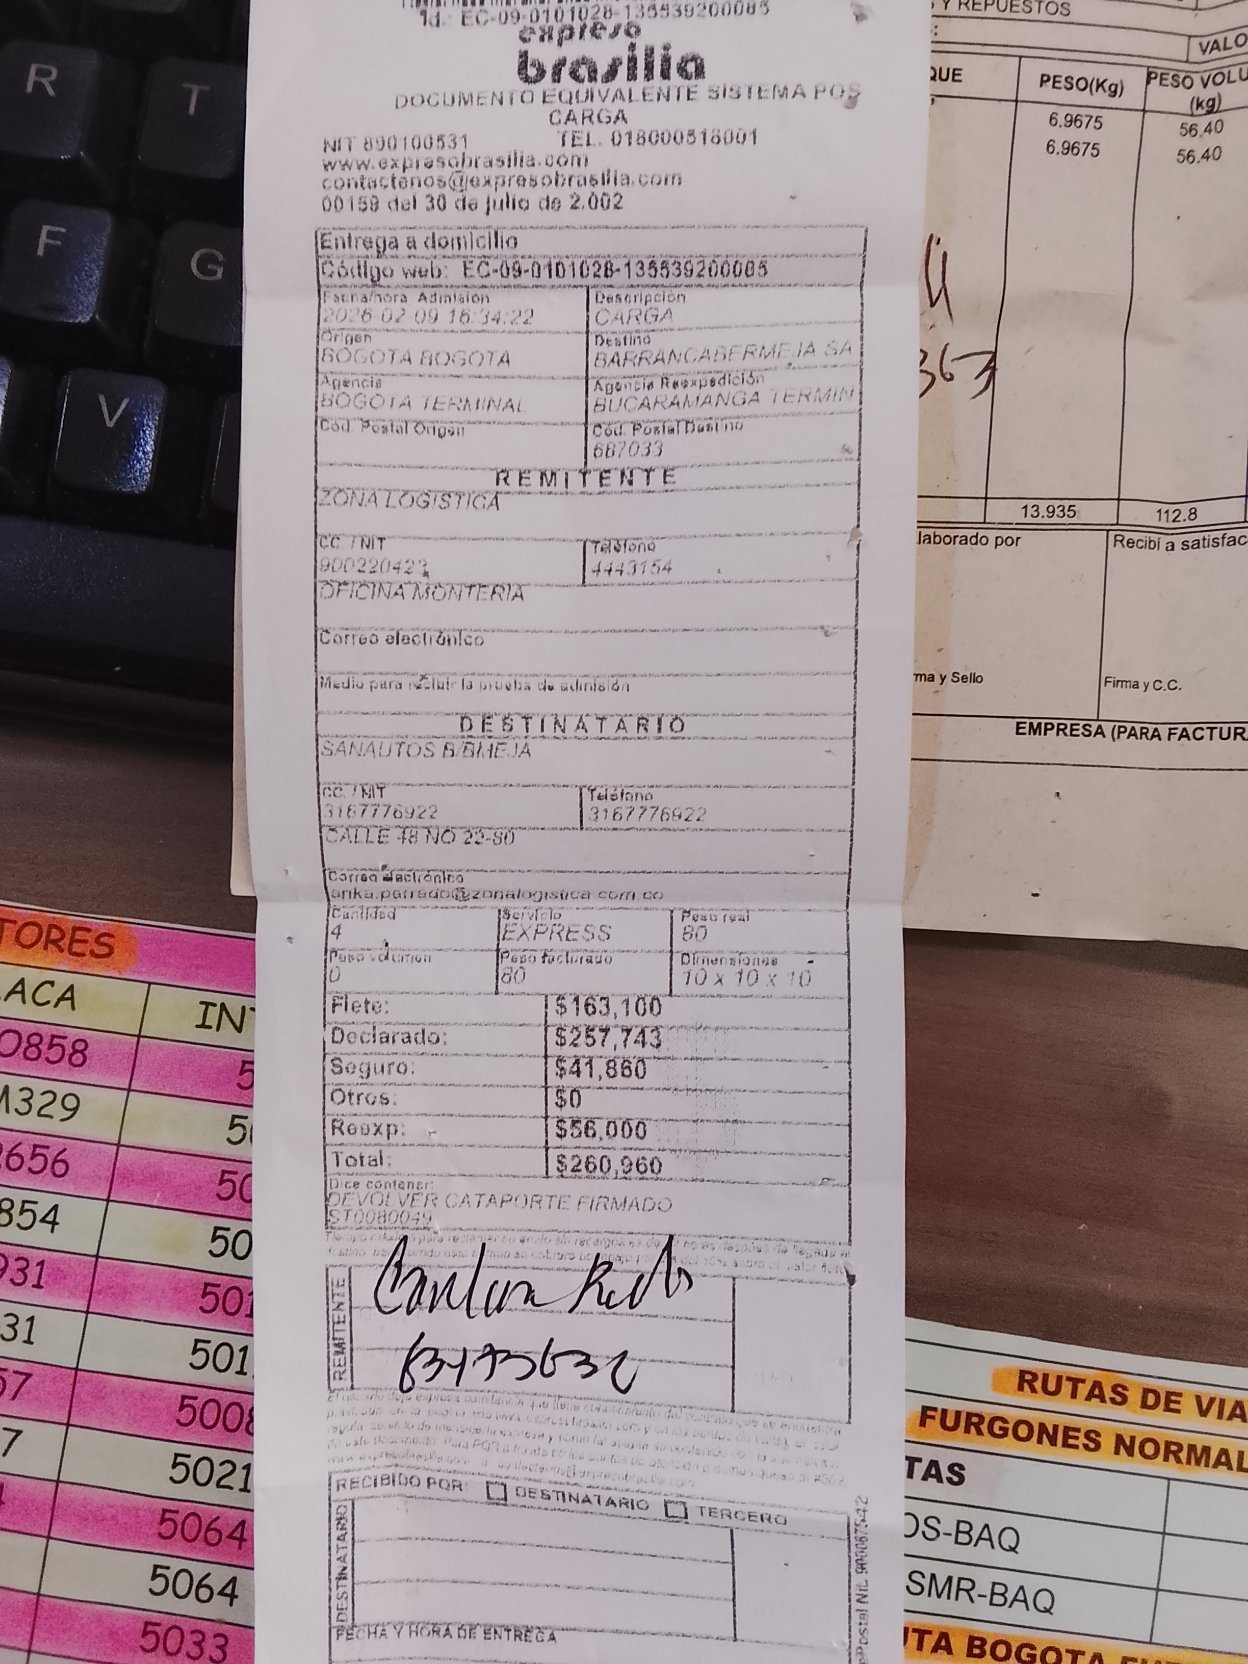 Id.: EC-09-0101028-135539200085
expreso
brasilia
DOCUMENTO EQUIVALENTE SISTEMA POS
CARGA
NIT 890100531 TEL. 018000518001
www.expresobrasilia.com
contactenos@expresobrasilia.com
00159 del 30 de julio de 2.002
Entrega a domicilio
Código web: EC-09-0101028-135539200085
Fecha/hora Admisión Descripción
2026-02-09 16:34:22 CARGA
Origen Destino
BOGOTA BOGOTA BARRANCABERMEJA SA
Agencia Agencia Reexpedición
BOGOTA TERMINAL BUCARAMANGA TERMIN
Cód. Postal Origen Cód. Postal Destino
687033
REMITENTE
ZONA LOGISTICA
CC. / NIT Teléfono
900220423 4443154
OFICINA MONTERIA
Correo electrónico
Medio para recibir la prueba de admisión
DESTINATARIO
SANAUTOS B/BMEJA
CC. / NIT Teléfono
3167776922 3167776922
CALLE 48 NO 22-80
Correo electrónico
erika.parrado@zonalogistica.com.co
Cantidad Servicio Peso real
4 EXPRESS 80
Peso volumen Peso facturado Dimensiones
0 80 10 x 10 x 10
Flete: $163,100
Declarado: $257,743
Seguro: $41,860
Otros: $0
Reexp: $56,000
Total: $260,960
Dice contener:
DEVOLVER CATAPORTE FIRMADO
ST0080049
REMITENTE
RECIBIDO POR: DESTINATARIO TERCERO
DESTINATARIO
FECHA Y HORA DE ENTREGA
Postal Nit. 900087542
R T
F G
V
Y REPUESTOS
VALO
QUE PESO(Kg) PESO VOLU
(kg)
6.9675 56.40
6.9675 56.40
363
13.935 112.8
laborado por Recibí a satisfac
ma y Sello Firma y C.C.
EMPRESA (PARA FACTUR
TORES
LACA IN
0858 5
M329 5
656 50
854 50
931 501
31 501
57 5008
7 5021
5064
5064
5033
RUTAS DE VIA
FURGONES NORMAL
TAS
OS-BAQ
SMR-BAQ
UTA BOGOTA